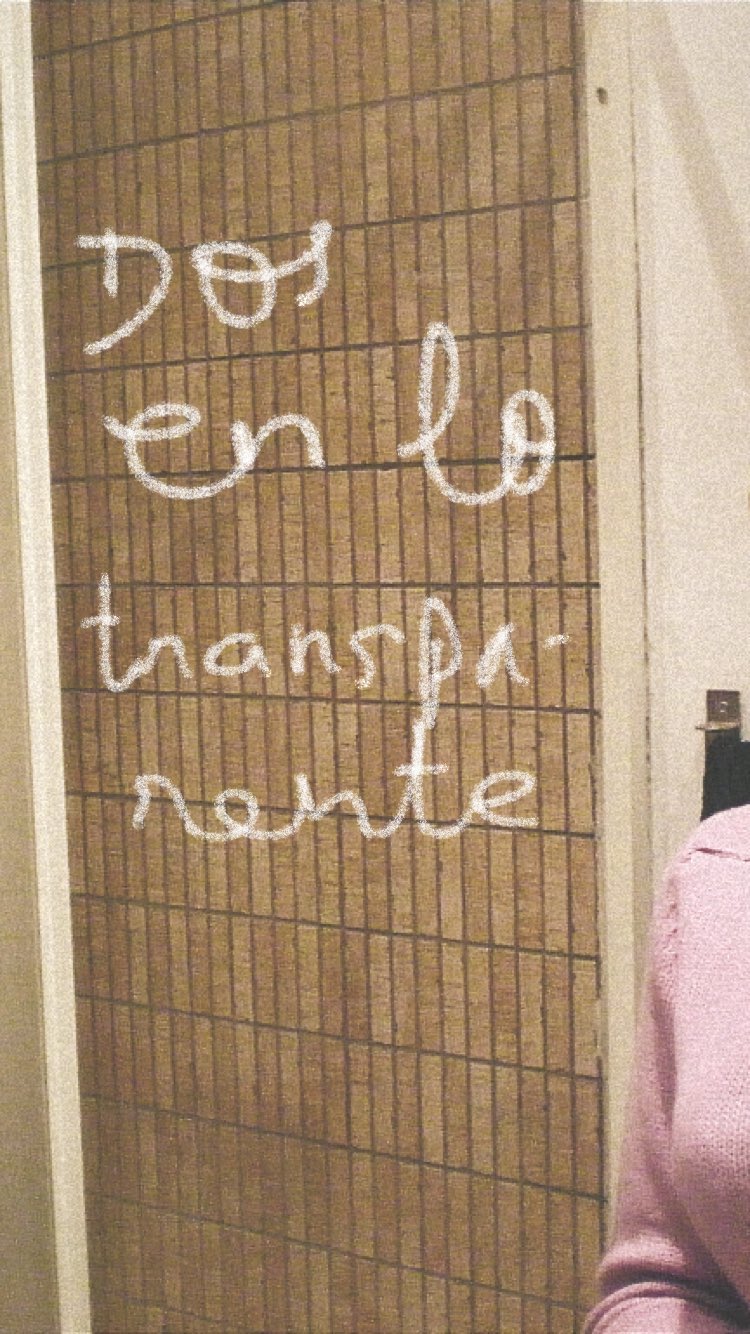 Dos
en lo
transpa-
rente